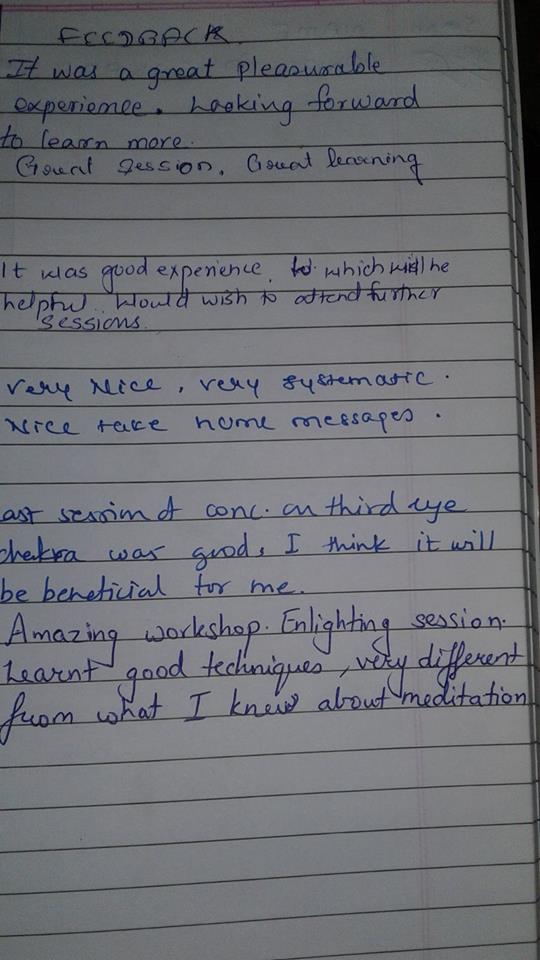 FEEDBACK
It was a great pleasurable
experience. Looking forward
to learn more.
Great session. Great learning
It was good experience. to which will be
helpful. Would wish to attend further
sessions.
very Nice, very systematic.
Nice take home messages.
ast session of conc. on third eye
chakra was good, I think it will
be beneficial for me.
Amazing workshop. Enlighting session.
Learnt good techniques, very different
from what I knew about meditation